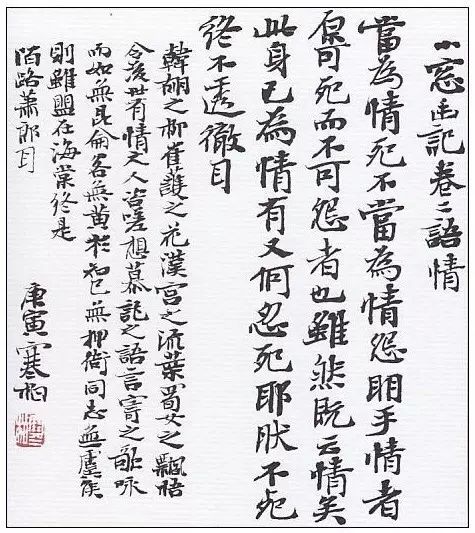 小窓幽記卷二語情
當為情死不當為情怨明乎情者
原可死而不可怨者也雖然既云情矣
此身已為情有又何忍死耶然不死
終不透徹耳
韓翃之柳崔護之花漢宮之流葉蜀女之飄梧
令後世有情之人咨嗟想慕託之語言寄之歌咏
而奴無昆侖客無黃衫知己無押衙同志無虞侯
則雖盟在海棠終是
陌路蕭郎耳
庚寅寒柏